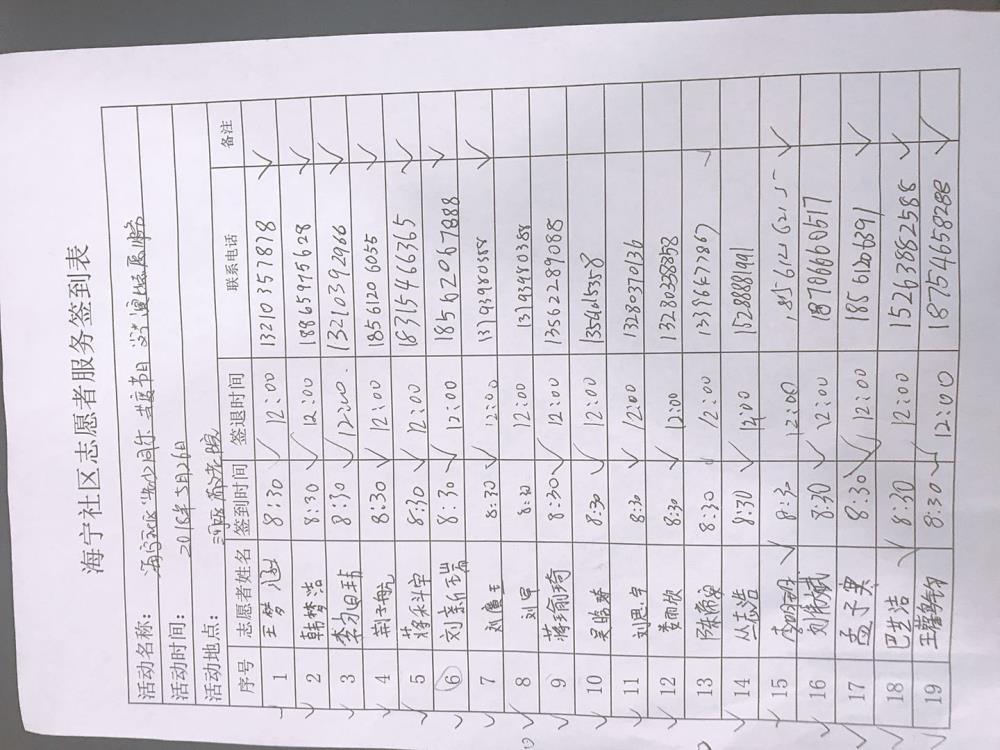 海宁社区志愿者服务签到表
活动名称:
活动时间: 2018年5月26日
活动地点:
序号 志愿者姓名 签到时间 签退时间 联系电话 备注
1 王梦涵 8:30 12:00 13210357878
2 韩梦浩 8:30 12:00 18865975628
3 8:30 12:00. 13210392966
4 荆子航 8:30 12:00 18561206055
5 8:30 12:00 18315466365
6 刘新瑞 8:30 12:00 18562067888
7 8:30 12:00 13793980388
8 刘军 8:30 12:00 13793980388
9 蒋瑜琦 8:30 12:00 13562289088
10 8:30 12:00
11 刘思宇 8:30 12:00 13280370136
12 娄雨欣 8:30 12:00 13280358358
13 8:30 12:00 13396477867
14 丛志浩 8:30 15288881991
15 李明明 8:30 12:00
16 刘伟斌 8:30 12:00 18786660517
17 孟子果 8:30 12:00 18561206391
18 巴芝洁 8:30 12:00 15263882588
19 8:30 12:00 18754658288